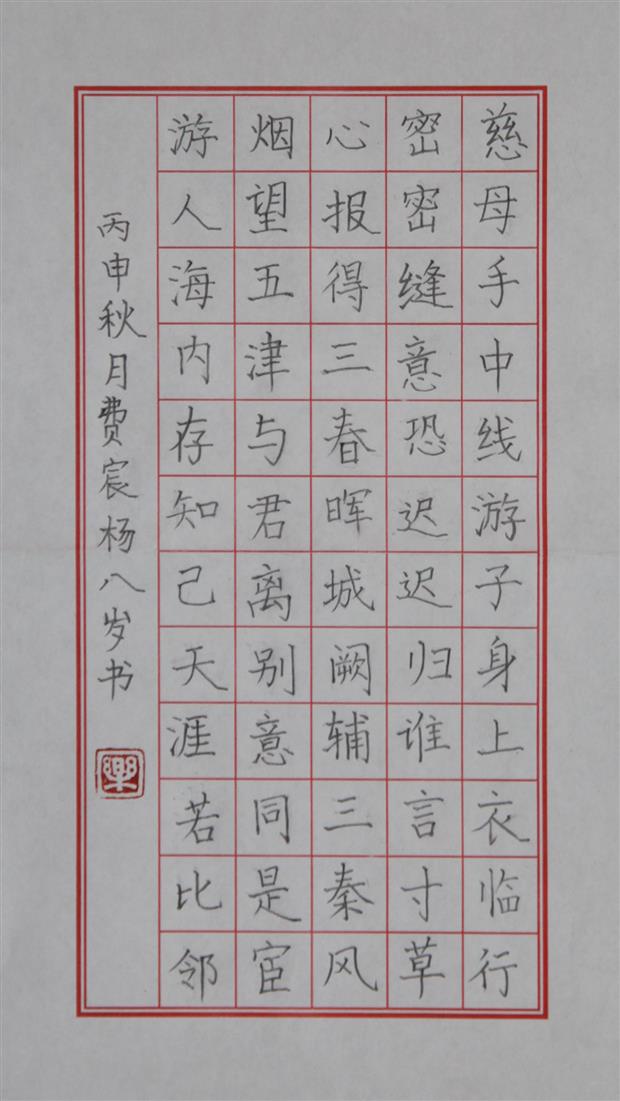 慈母手中线游子身上衣临行
密密缝意恐迟迟归谁言寸草
心报得三春晖城阙辅三秦风
烟望五津与君离别意同是宦
游人海内存知己天涯若比邻
丙申秋月费宸杨八岁书